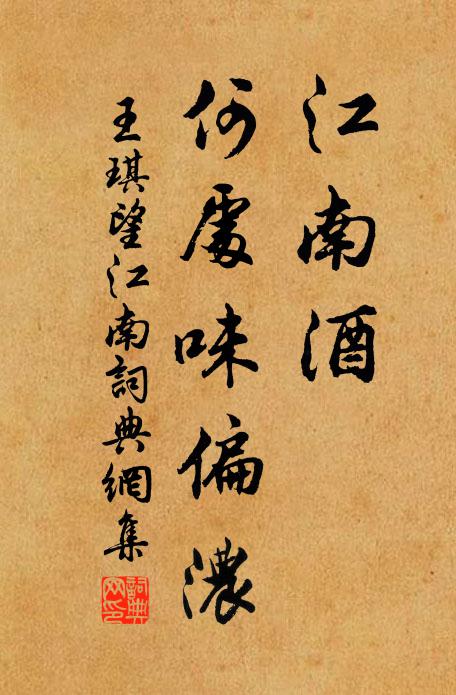 江南酒
何處味偏濃
王琪望江南詞典網集
詞典網印